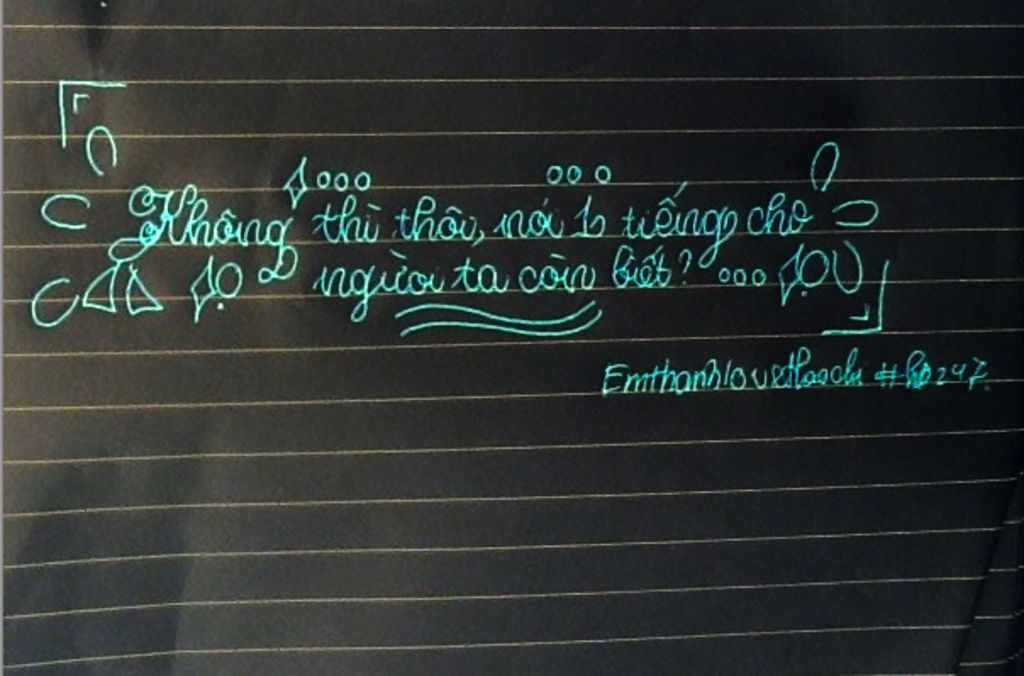 Không thì thôi, nói 1 tiếng cho
người ta còn biết?